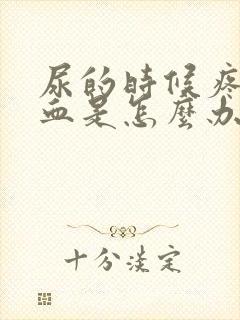 尿的時候疼
血是怎麼办
十分淡定